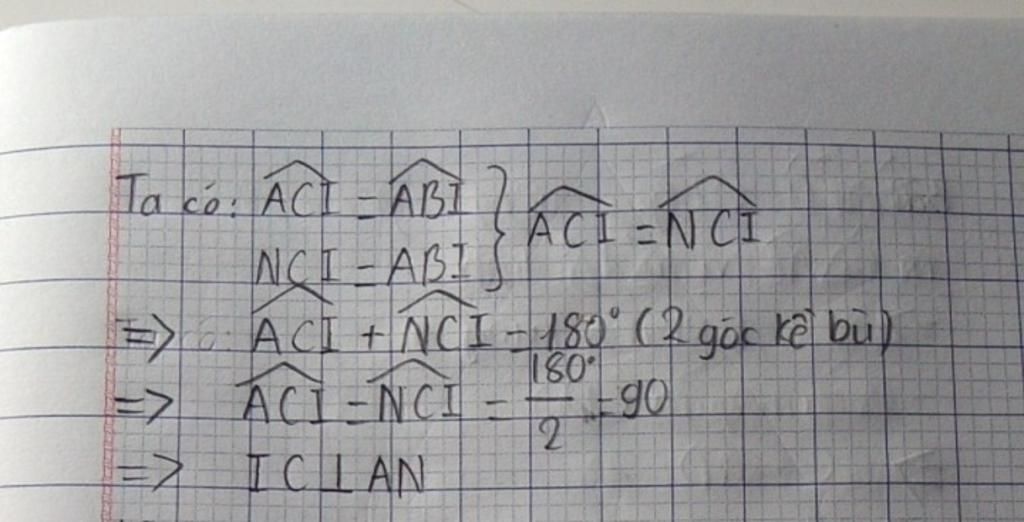 Ta có: $\widehat{ACI} = \widehat{ABI}$ } $\widehat{ACI} = \widehat{NCI}$
NCI = ABI
=> $\widehat{ACI} + \widehat{NCI} = 180°$ (2 góc kề bù)
=> $\widehat{ACI} = \widehat{NCI} = \frac{180°}{2} = 90$
=> IC ⊥ AN